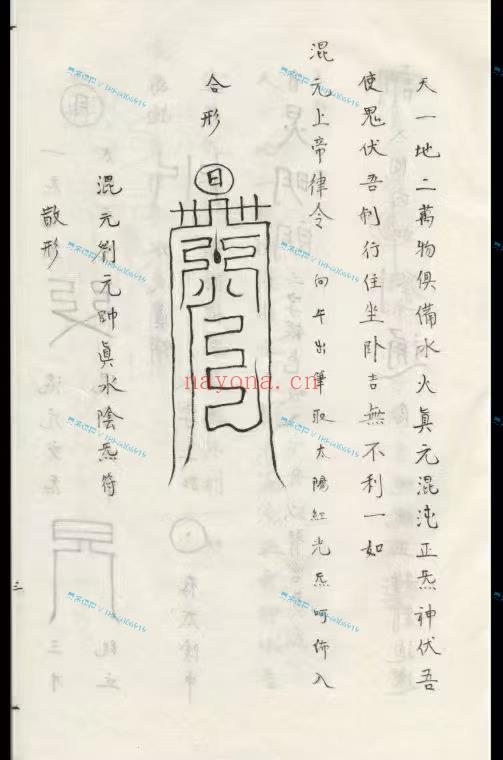 天一地二萬物俱備水火眞元混沌正炁神伏吾
使鬼伏吾制行住坐卧吉無不利一如
混元上帝律令 向午出筆取太陽紅光炁呵佈入
合形
日
混元劉元帥眞水陰炁符
散形
三
nayona.cn